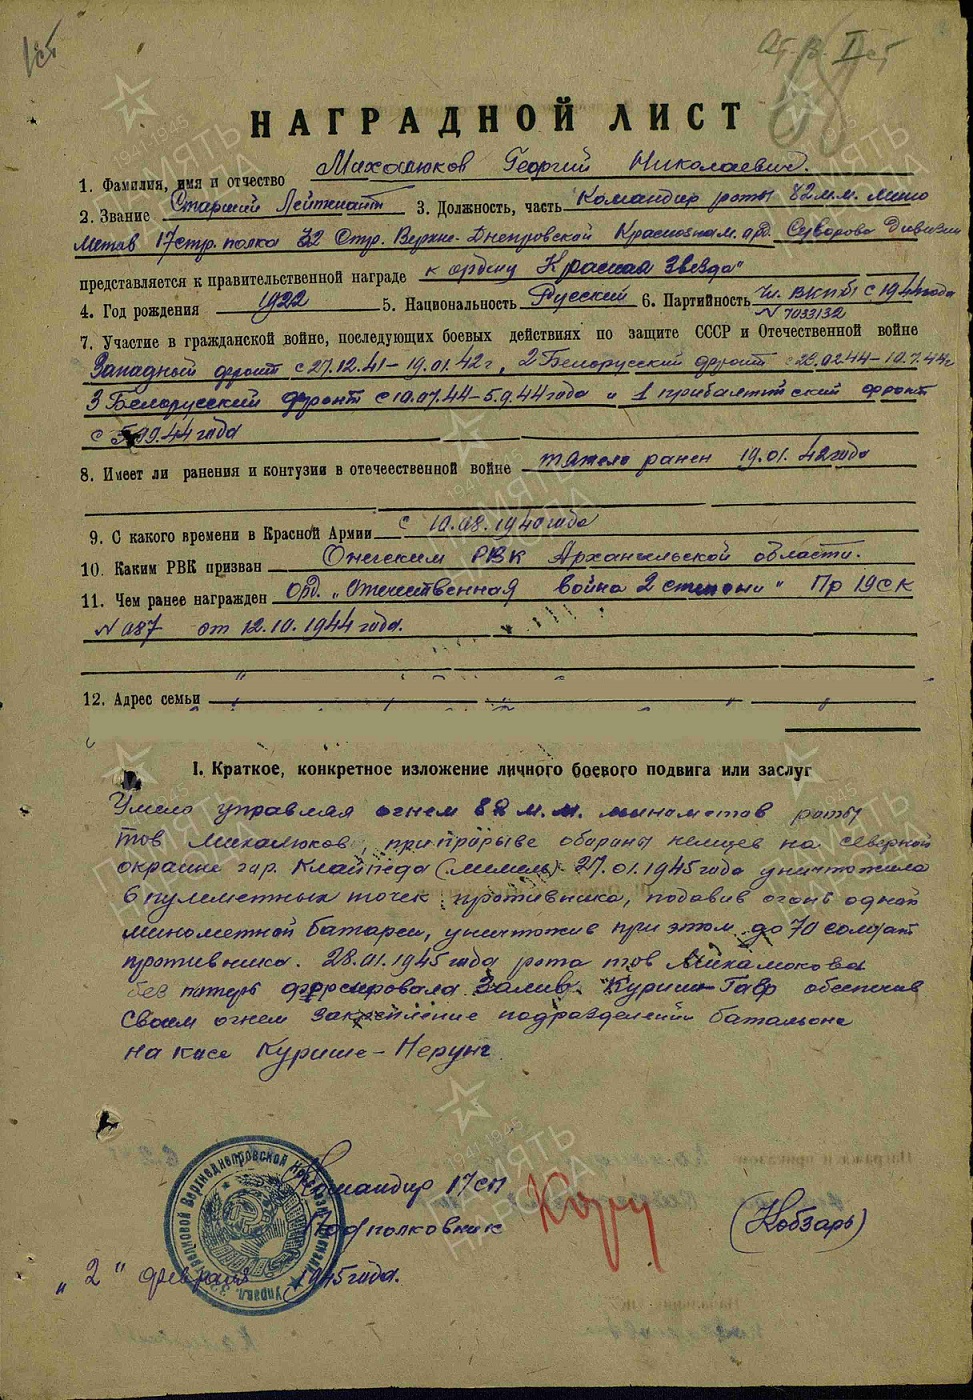 1 ст
От. В. I ст
68
НАГРАДНОЙ ЛИСТ
1. Фамилия, имя и отчество Михалюков Георгий Николаевич.
2. Звание Старший Лейтнант 3. Должность, часть Командир роты 82 м.м. мино
метов 17 стр. полка 32 Стр. Верхне-Днепровской Краснознам. орд. Суворова Дивизии
представляется к правительственной награде к ордену Красная Звезда"
4. Год рождения 1922 5. Национальность Русский 6. Партийность Чл. ВКП(б) с 1944 года
N 7033132
7. Участие в гражданской войне, последующих боевых действиях по защите СССР и Отечественной войне
Западный фронт с 27.12.41 – 19.01.42 г, 2 Белорусский фронт с 23.02.44 – 10.7.44 г
3 Белорусский фронт с 10.07.44 – 5.9.44 года и 1 прибалтийский фронт
с 5.09.44 года
8. Имеет ли ранения и контузии в отечественной войне тяжело ранен 19.01.42 года
9. С какого времени в Красной Армии с 10.08.1940 года
10. Каким РВК призван Онежским РВК Архангельской области.
11. Чем ранее награжден орд. „Отечественная война 2 степени" Пр 19 СК
N 087 от 12.10.1944 года.
12. Адрес семьи
I. Краткое, конкретное изложение личного боевого подвига или заслуг
Умело управляя огнем 82 м.м. минометов роты
тов Михалюков, при прорыве обороны немцев на северной
окраине гор. Клайпеда (Мемель) 27.01.1945 года уничтожила
6 пулеметных точек противника, подавив огонь одной
минометной батареи, уничтожив при этом до 70 солдат
противника. 28.01.1945 года рота тов Михалюкова
без потерь форсировала Залив Куриш-Гаф обеспечив
своим огнем закрепление подразделений батальона
на косе Курише-Нерунг
Командир 17 сп
Подполковник (Кобзарь)
„2" февраля 1945 года.